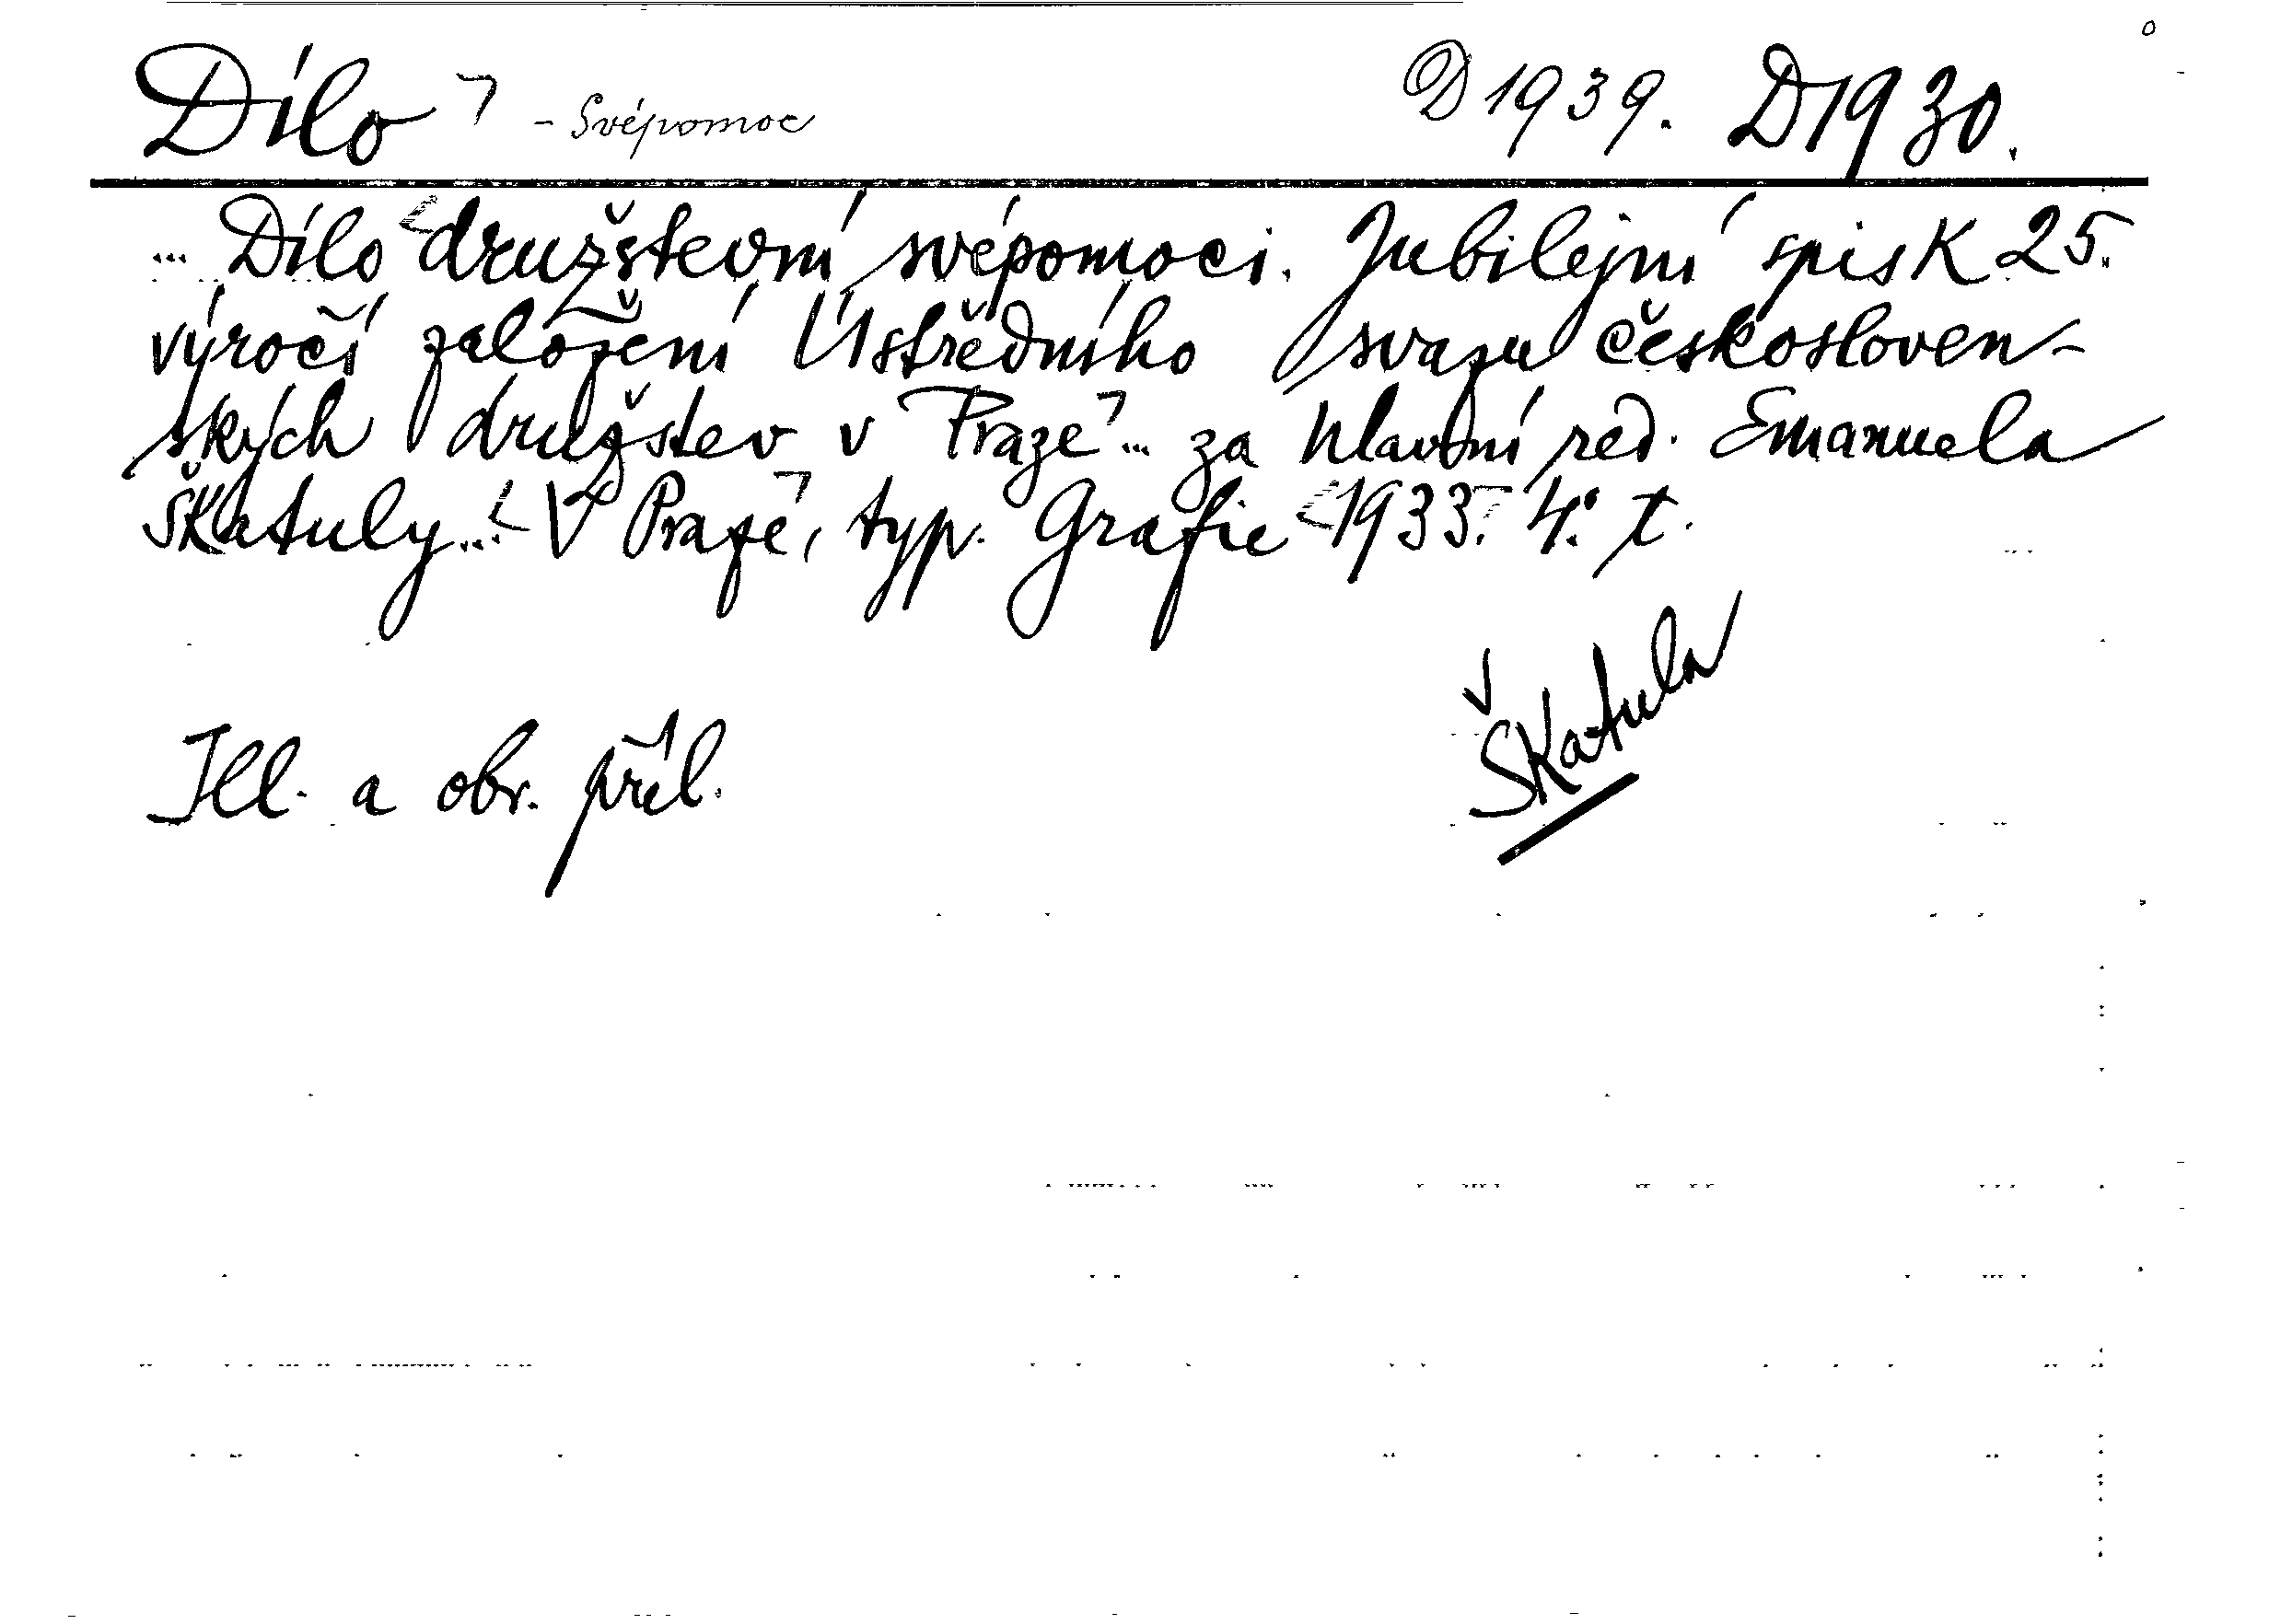 Dílo ⌝ - Svépomoc D 1939. D 1930.
... Dílo družstevní svépomoci. Jubilejní spis k 25.
výročí založení Ústředního svazu českosloven-
ských družstev v Praze ... za hlavní red. Emanuela
Škatuly ... V Praze, typ. Grafie 1933. 4.° t.
Škatula
Ill. a obr. příl.